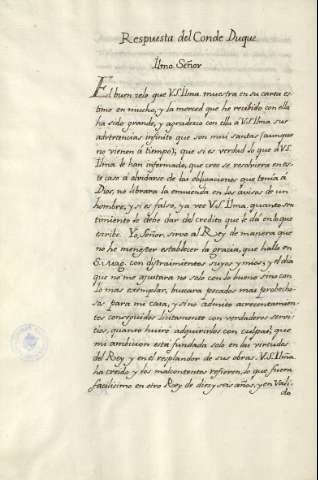 Respuesta del Conde Duque
Illmo. Señor
El buen zelo que V.S. Illma. muestra en su carta es
timo en mucho, y la merced que he recibido con ella
ha sido grande, y agradezco con ella à V.S. Illma. sus
advertencias infinito que son mui santas (aunque
no vienen à tiempo); que si es verdad lo que à V.S.
Illma. le han informado, que cree se resolviera en es-
te caso à olvidarse de las obligaciones que tenía à
Dios, no librara la enmienda en los avisos de un
hombre, y si es falso, ya vee V.S. Illma. quanto sen
timiento se debe dar del credito que le dà en lo que
escribe. Yo, Señor, sirvo al Rey de manera que
no he menester establecer la gracia, que halle en
S. Mag. con distraimientos suyos y mios, y el dia
que no me ajustara no solo con lo bueno sino con
lo mas exemplar, buscara pecados mas probecho-
sos para mi casa, y si no admito acrecentamien-
tos conseguidos licitamente con verdaderos servi-
cios, quanto huiré adquirirlos con culpas; que
mi ambicion está fundada solo en las virtudes
del Rey y en el resplandor de sus obras. V.S. Illma.
ha creido y los malcontentos refieren, lo que fuera
facilisimo en otro Rey de diez y seis años, y en Vali-
do